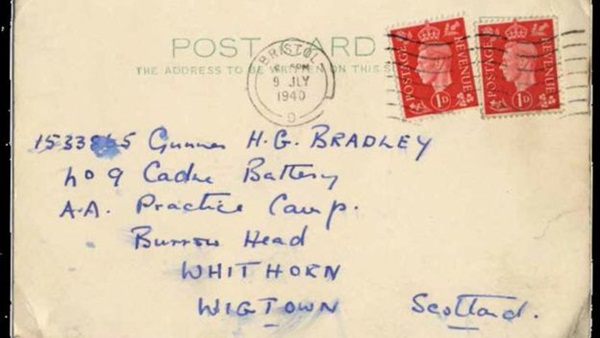 POST CARD
THE ADDRESS TO BE WRITTEN ON THIS
BRISTOL
PM
9 JLY
1940
D
POSTAGE REVENUE
1D
POSTAGE REVENUE
1D
Gunner H.G. BRADLEY
No 9 Cadre Battery
A.A. Practice Camp.
Burrow Head
WHITHORN
WIGTOWN Scotland.